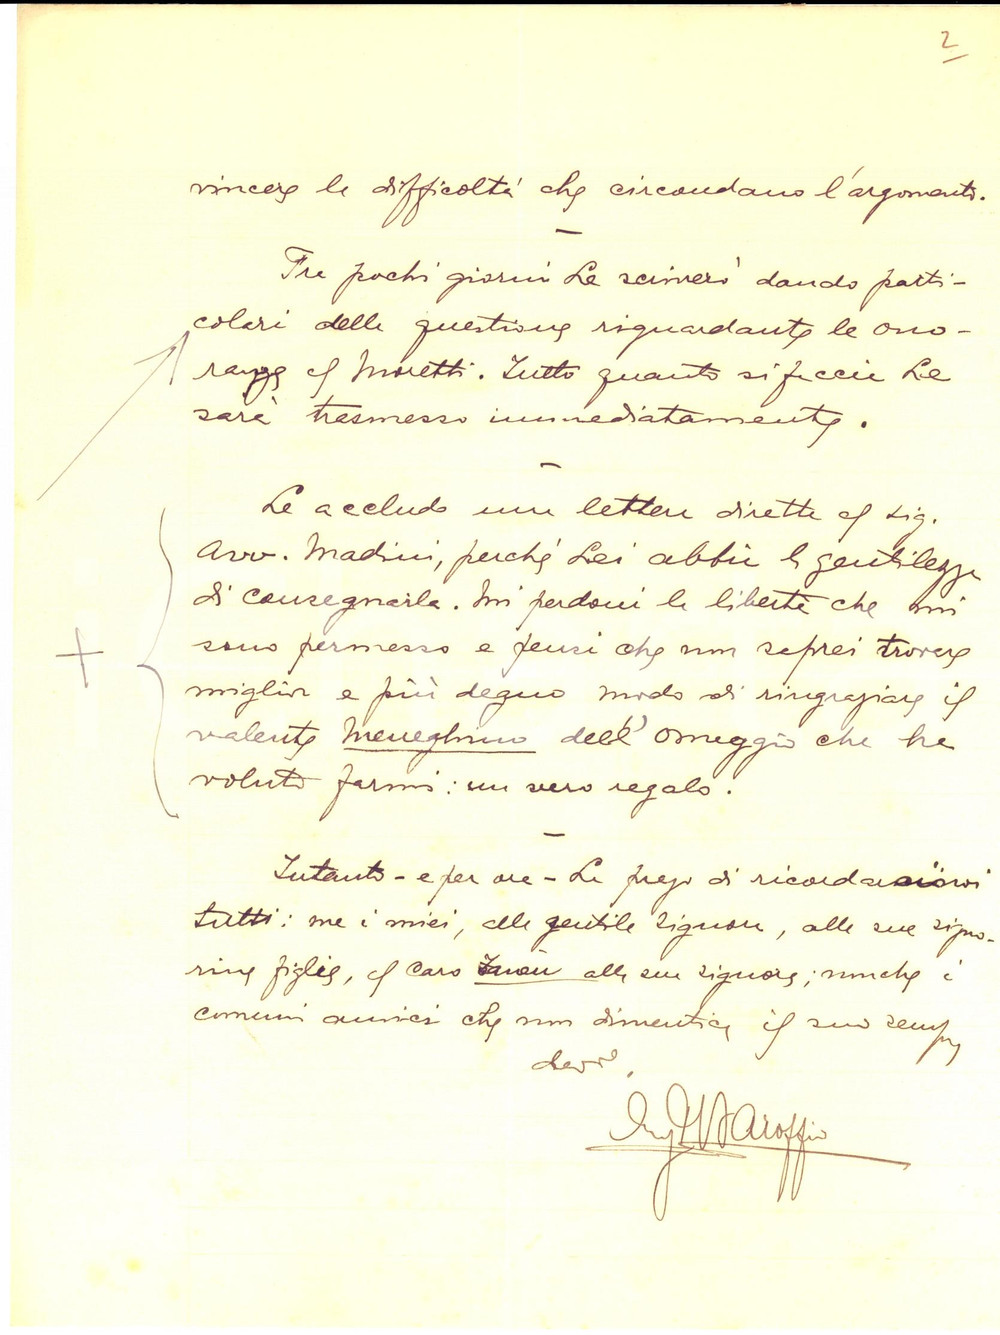 2
vincere le difficoltà che circondano l'argomento.
Fra pochi giorni Le scriverò dando parti-
colari della questione riguardante le ono-
ranze al Moretti. Tutto quanto si faccia Le
sarà trasmesso immediatamente.
Le accludo una lettera diretta al Sig.
Avv. Madini, perché Lei abbia la gentilezza
di consegnarla. Mi perdoni la libertà che mi
sono permesso e pensi che non saprei trovare
miglior e più degno modo di ringraziare il
valente Meneghino dell'omaggio che ha
voluto farmi: un vero regalo.
Intanto - e per ora - La prego di ricordar
tutti: me i miei, alla gentile Signora, alle sue signo-
rine figlie, al caro alla sua signora; nonché i
comuni amici che non dimentica il suo sempre
devmo.
Ing Baroffio